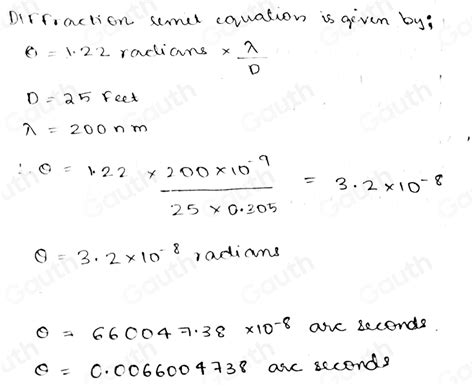 Diffraction limit equation is given by;
θ = 1.22 radians × λ/D
D = 25 feet
λ = 200 nm
∴ θ = 1.22 × 200×10⁻⁹ / 25 × 0.305 = 3.2×10⁻⁸
θ = 3.2×10⁻⁸ radians
θ = 660047.38 ×10⁻⁸ arc seconds.
θ = 0.0066004738 arc seconds